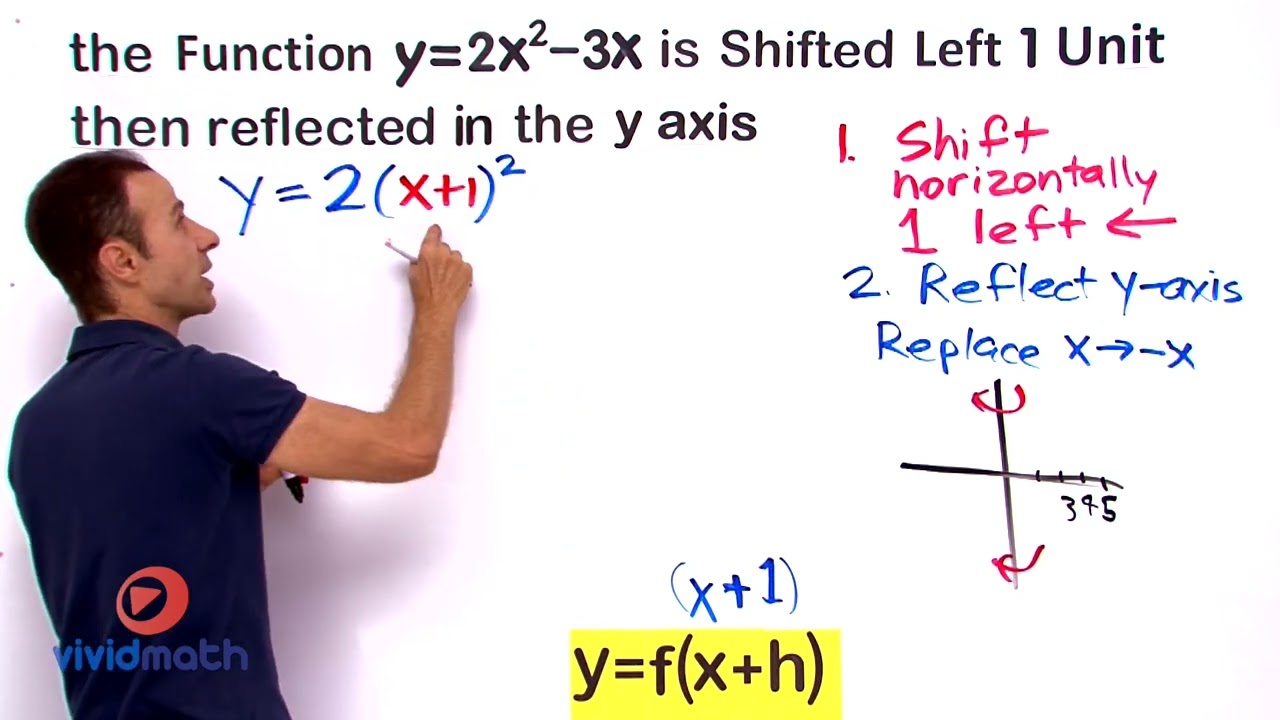 the Function y=2x²-3x is Shifted Left 1 Unit
then reflected in the y axis
y = 2(x+1)²
1. Shift
horizontally
1 left ←
2. Reflect y-axis
Replace x→-x
3 4 5
(x+1)
y=f(x+h)
vividmath